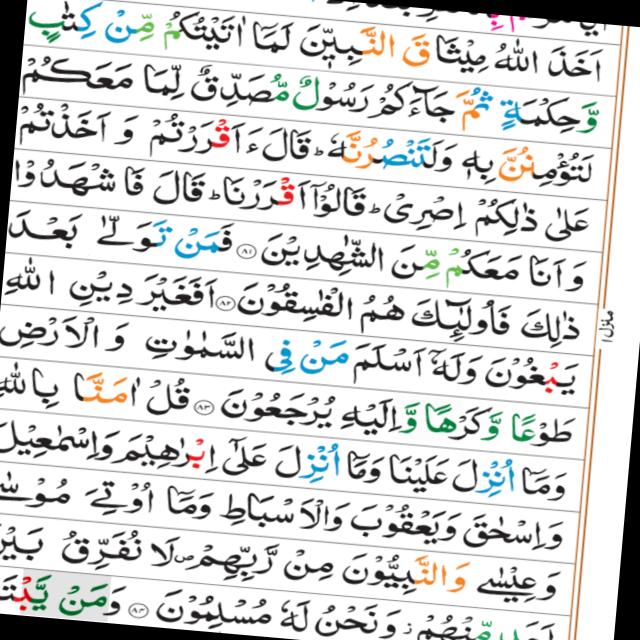 اَخَذَ اللّٰهُ مِيْثَاقَ النَّبِيّٖنَ لَمَاۤ اٰتَيْتُكُمْ مِّنْ كِتٰبٍ
وَّحِكْمَةٍ ثُمَّ جَآءَكُمْ رَسُوْلٌ مُّصَدِّقٌ لِّمَا مَعَكُمْ
لَتُؤْمِنُنَّ بِهٖ وَلَتَنْصُرُنَّهٗ ؕ قَالَ ءَاَقْرَرْتُمْ وَ اَخَذْتُمْ
عَلٰى ذٰلِكُمْ اِصْرِىْ ؕ قَالُوْۤا اَقْرَرْنَا ؕ قَالَ فَاشْهَدُوْا
وَ اَنَا مَعَكُمْ مِّنَ الشّٰهِدِيْنَ ﴿۸۱﴾ فَمَنْ تَوَلّٰى بَعْدَ
ذٰلِكَ فَاُولٰٓئِكَ هُمُ الْفٰسِقُوْنَ ﴿۸۲﴾ اَفَغَيْرَ دِيْنِ اللّٰهِ
يَبْغُوْنَ وَلَهٗۤ اَسْلَمَ مَنْ فِى السَّمٰوٰتِ وَ الْاَرْضِ
طَوْعًا وَّكَرْهًا وَّاِلَيْهِ يُرْجَعُوْنَ ﴿۸۳﴾ قُلْ اٰمَنَّا بِاللّٰهِ
وَمَاۤ اُنْزِلَ عَلَيْنَا وَمَاۤ اُنْزِلَ عَلٰٓى اِبْرٰهِيْمَ وَاِسْمٰعِيْلَ
وَاِسْحٰقَ وَيَعْقُوْبَ وَالْاَسْبَاطِ وَمَاۤ اُوْتِىَ
وَعِيْسٰى وَالنَّبِيُّوْنَ مِنْ رَّبِّهِمْ ص لَا نُفَرِّقُ بَيْنَ
مِّنْهُمْ ز وَنَحْنُ لَهٗ مُسْلِمُوْنَ ﴿۸۴﴾ وَمَنْ
منزل ۱